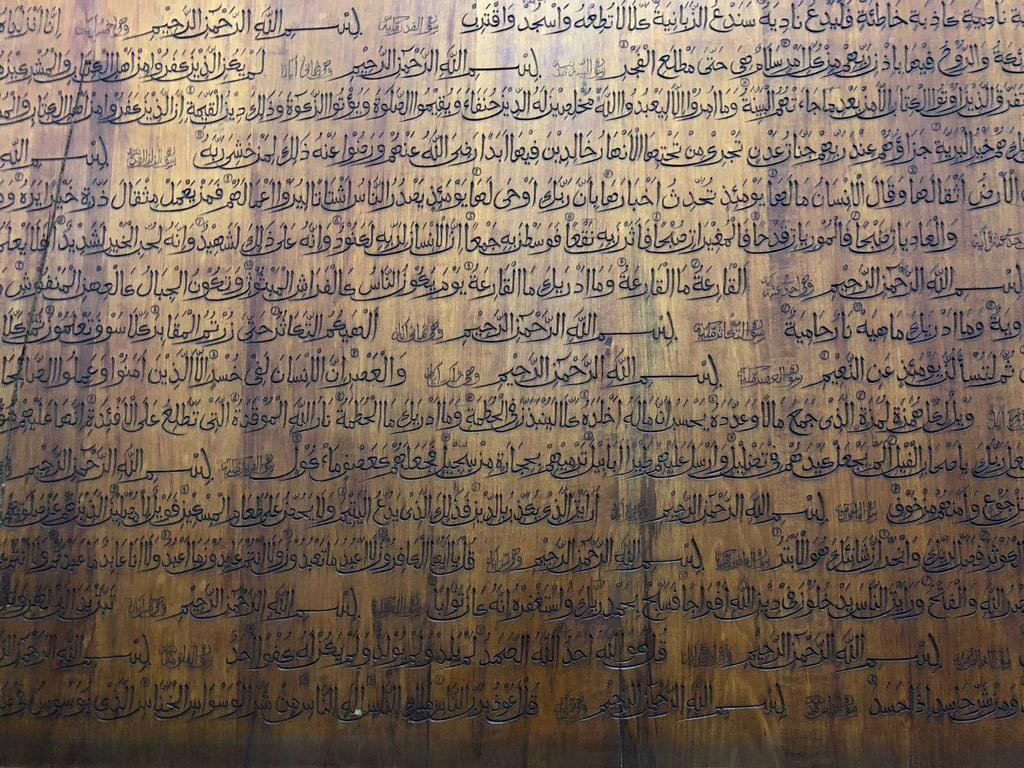 ناصية كاذبة خاطئة فليدع ناديه سندع الزبانية كلا لا تطعه واسجد واقترب سورة القدر مكية بسم الله الرحمن الرحيم انا انزلناه
والروح فيها باذن ربهم من كل امر سلام هي حتى مطلع الفجر بسم الله الرحمن الرحيم وهي ثماني آيات لم يكن الذين كفروا من اهل الكتاب والمشركين
تفرق الذين اوتوا الكتاب الا من بعد ما جاءتهم البينة وما امروا الا ليعبدوا الله مخلصين له الدين حنفاء ويقيموا الصلوة ويؤتوا الزكوة وذلك دين القيمة ان الذين كفروا من اهل الكتاب
هم خير البرية جزاؤهم عند ربهم جنات عدن تجري من تحتها الانهار خالدين فيها ابدا رضي الله عنهم ورضوا عنه ذلك لمن خشي ربه بسم الله
الارض اثقالها وقال الانسان ما لها يومئذ تحدث اخبارها بان ربك اوحى لها يومئذ يصدر الناس اشتاتا ليروا اعمالهم فمن يعمل مثقال ذرة خيرا يره
والعاديات ضبحا فالموريات قدحا فالمغيرات صبحا فاثرن به نقعا فوسطن به جمعا ان الانسان لربه لكنود وانه على ذلك لشهيد وانه لحب الخير لشديد افلا يعلم
بسم الله الرحمن الرحيم القارعة ما القارعة وما ادريك ما القارعة يوم يكون الناس كالفراش المبثوث وتكون الجبال كالعهن المنفوش
وما ادريك ماهية نار حامية سورة التكاثر مكية بسم الله الرحمن الرحيم وهي ثماني آيات الهيكم التكاثر حتى زرتم المقابر كلا سوف تعلمون ثم كلا
ثم لتسألن يومئذ عن النعيم سورة العصر مكية بسم الله الرحمن الرحيم وهي ثلاث آيات والعصر ان الانسان لفي خسر الا الذين امنوا وعملوا الصالحات
ويل لكل همزة لمزة الذي جمع مالا وعدده يحسب ان ماله اخلده كلا لينبذن في الحطمة وما ادريك ما الحطمة نار الله الموقدة التي تطلع على الافئدة انها عليهم
فعل ربك باصحاب الفيل الم يجعل كيدهم في تضليل وارسل عليهم طيرا ابابيل ترميهم بحجارة من سجيل فجعلهم كعصف مأكول بسم الله الرحمن الرحيم
جوع وامنهم من خوف بسم الله الرحمن الرحيم ارايت الذي يكذب بالدين فذلك الذي يدع اليتيم ولا يحض على طعام المسكين فويل للمصلين الذين هم عن صلوتهم
الكوثر فصل لربك وانحر ان شانئك هو الابتر بسم الله الرحمن الرحيم قل يا ايها الكافرون لا اعبد ما تعبدون ولا انتم عابدون ما اعبد ولا انا عابد ما عبدتم
نصر الله والفتح ورايت الناس يدخلون في دين الله افواجا فسبح بحمد ربك واستغفره انه كان توابا بسم الله الرحمن الرحيم تبت يدا ابي لهب وتب
بسم الله الرحمن الرحيم قل هو الله احد الله الصمد لم يلد ولم يولد ولم يكن له كفوا احد بسم الله الرحمن الرحيم
ومن شر حاسد اذا حسد بسم الله الرحمن الرحيم قل اعوذ برب الناس ملك الناس اله الناس من شر الوسواس الخناس الذي يوسوس في